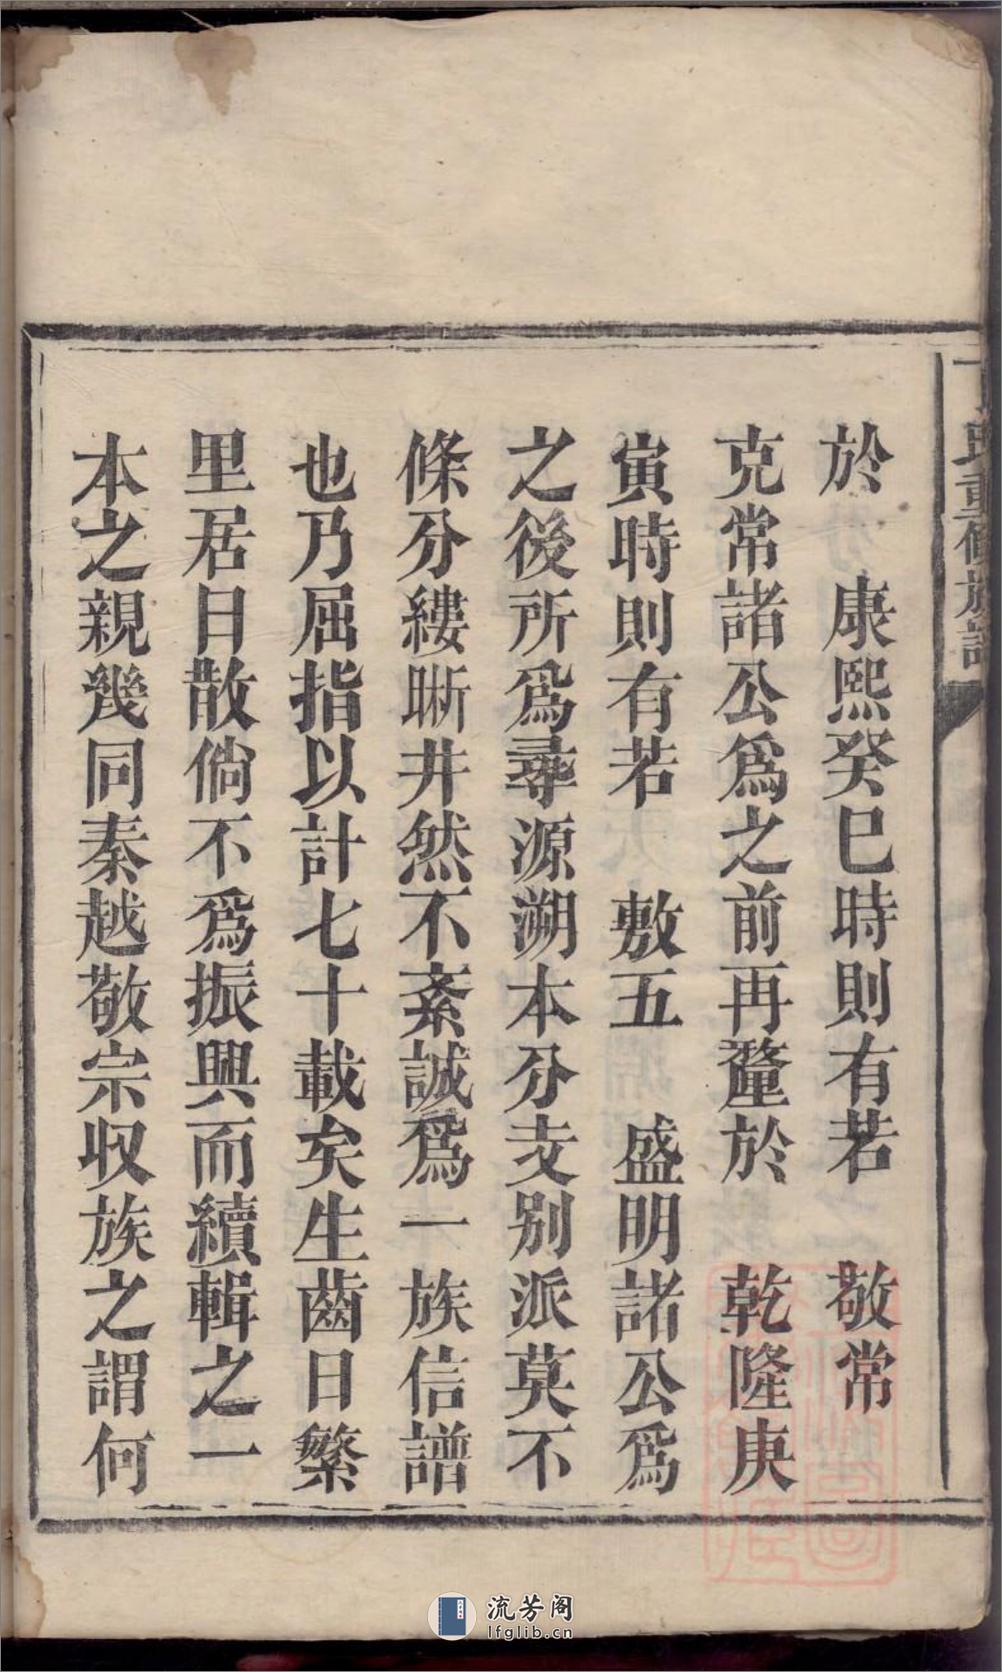 於　康熙癸巳時則有若　敬常
克常諸公爲之前再釐於　乾隆庚
寅時則有若　敷五　盛明諸公爲
之後所爲尋源溯本分支别派莫不
條分縷晰井然不紊誠爲一族信譜
也乃屈指以計七十載矣生齒日繁
里居日散倘不爲振興而續輯之一
本之親幾同秦越敬宗収族之謂何
氏重修族譜
流芳阁
lfglib.cn